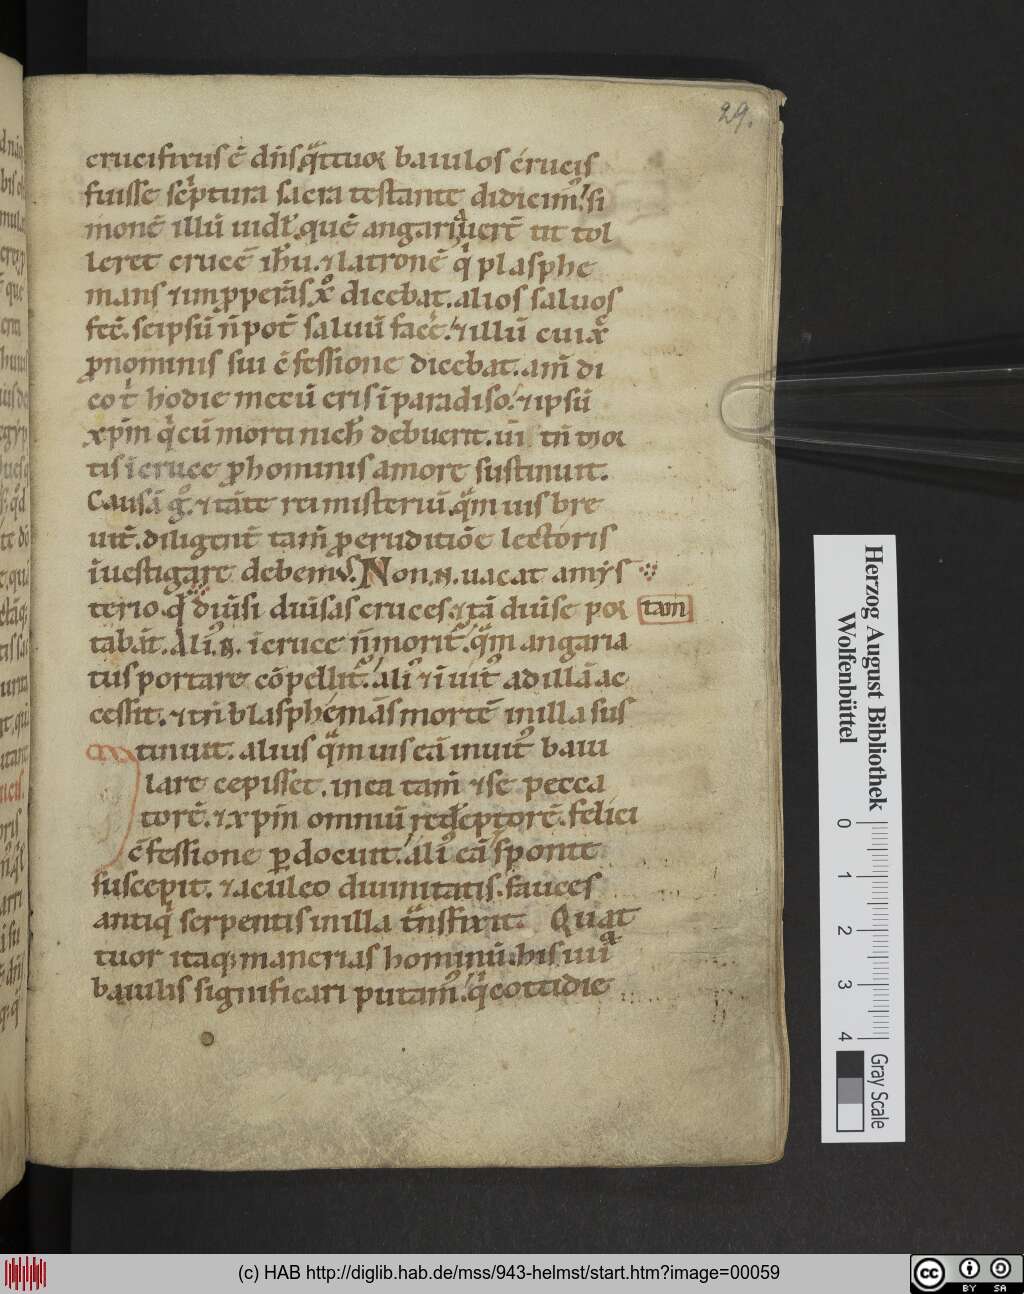 29.
crucifixus ē dn̄s q̄ttuor baiulos crucis
fuisse sc̅ptura sacra testante didicim᷒. si
monē illū uidʒ. quē angariauer̄t ut tol
leret crucē ih̄u. ⁊ latronē q̇ plasphe
mans ⁊ īmpꝓperās xp̄o dicebat. alios saluos
fec̄. seipsū n̄ pot̄ saluū facē. ⁊ illū cui xp̄o
ꝓ nominis sui c̄fessione dicebat. am̄ di
co t̄ hodie mecū eris ī paradiso. ⁊ ipsū
xp̄m q̇ cū morti nich̄ debuerit. uī tn̄ mor
tis ī cruce ꝓ hominis amore sustinuit.
Causā g̊. ⁊ tāte rei misteriū. q̄m uis bre
uit̄. diligent̄ tam̄ ꝓ eruditiōe lectoris
īuestigare debem᷒. Non .n. uacat a mys
terio. q̄ diūsi diūsas cruces. ⁊ tā diūse por tam
tab̄at. Ali᷒ .n. ī cruce n̄ morit᷒. q̄m angaria
tus portare cōpellit᷒. ali᷒ ⁊ īuit᷒ ad illā ac
cessit. ⁊ tn̄ blasphemās mortē in illa sus
tinuit. alius q̄m uis eā inuit᷒ baiu
lare cepisset. in ea tam̄ ⁊ se pecca
torē. ⁊ xp̄m omniū redēptorē. felici
c̄fessione ꝑdocuit. ali᷒ eā sponte
suscepit. ⁊ aculeo diuinitatis. fauces
antiq̇ serpentis in illa t̄nsfixit. Quat
tuor itaq; manerias hominū. his iiii
baiulis significari putam᷒. q̇ cottidie
Herzog August Bibliothek
Wolfenbüttel
0 1 2 3 4
Gray Scale
(c) HAB http://diglib.hab.de/mss/943-helmst/start.htm?image=00059
cc BY SA